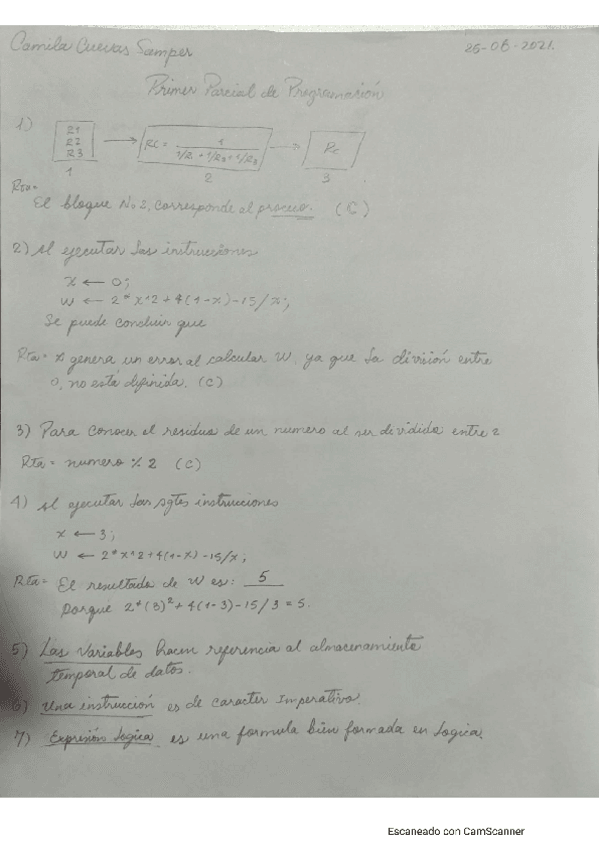 Camila Cuevas Samper 26-08-2021.
Primer Parcial de Programación
1) R1
R2
R3
1
RC = 1
1/R1 + 1/R2 + 1/R3
2
Rc
3
Rta=
El bloque No 2, corresponde al proceso. (C)
2) Al ejecutar las instrucciones
x ← 0;
W ← 2*x^2+4(1-x)-15/x;
Se puede concluir que
Rta= x genera un error al calcular W, ya que la división entre
0, no está definida. (C)
3) Para conocer el residuo de un numero al ser dividido entre 2
Rta= numero % 2 (C)
4) Al ejecutar las sgtes instrucciones
x ← 3;
W ← 2*x^2+4(1-x)-15/x;
Rta= El resultado de W es: 5
Porque 2*(3)²+4(1-3)-15/3=5.
5) Las Variables hacen referencia al almacenamiento
temporal de datos.
6) Una instrucción es de caracter Imperativo.
7) Expresión Logica es una formula bien formada en Logica.
Escaneado con CamScanner